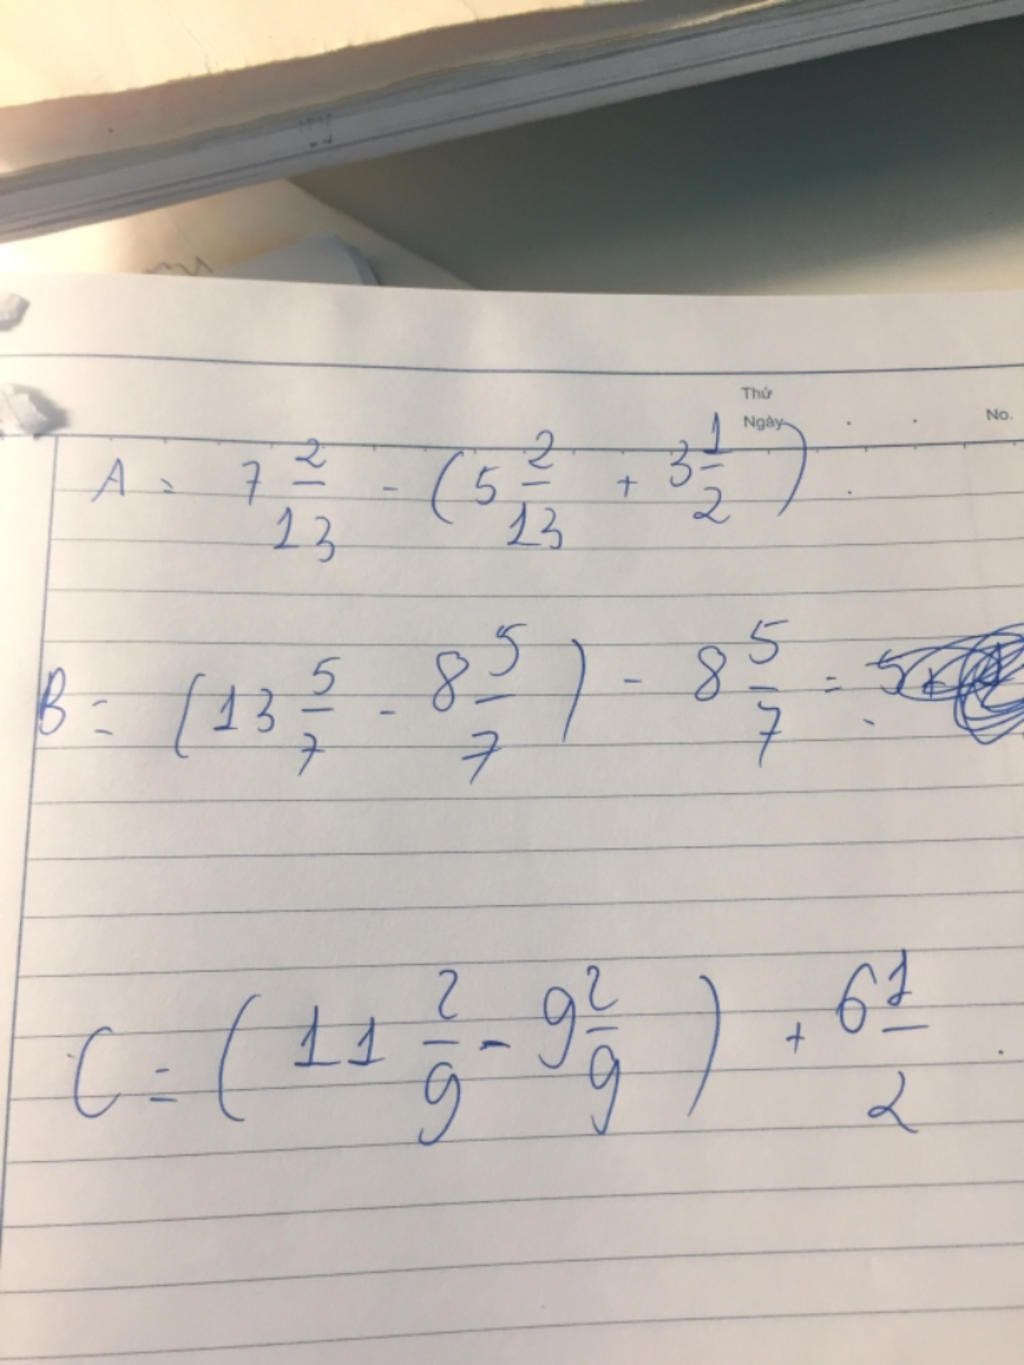 Thứ
Ngày . . No.
A = 7 2/13 - (5 2/13 + 3 1/2) .
B = (13 5/7 - 8 5/7) - 8 5/7 =
C = (11 2/9 - 9 2/9) + 6 1/2 .